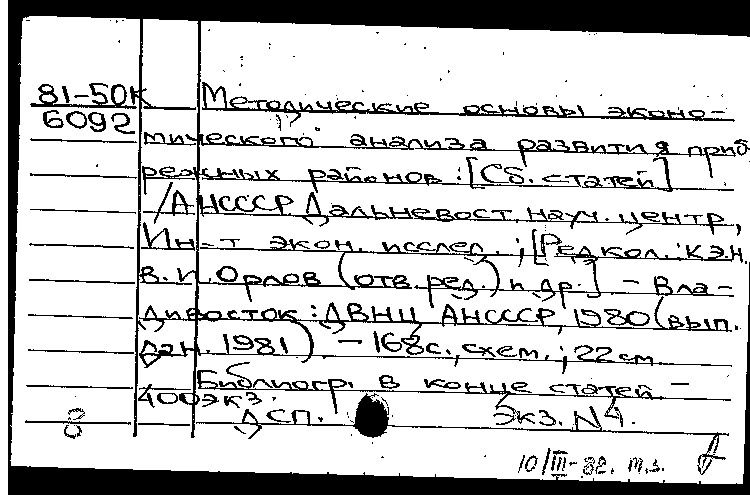 81-50К Методические основы эконо-
6092 мического анализа развития приб
режных районов : [Сб. статей]
/АНСССР Дальневост. науч. центр,
Ин-т экон. исслед. ; [Редкол.: к.э.н.
В.И. Орлов (отв. ред.) и др.] - Вла-
дивосток : ДВНЦ АНСССР, 1980 (вып.
дан. 1981). - 168 с., схем. ; 22 см.
Библиогр. в конце статей. -
400 экз.
ДСП. Экз. N4.
8
10/III-82. т.з.